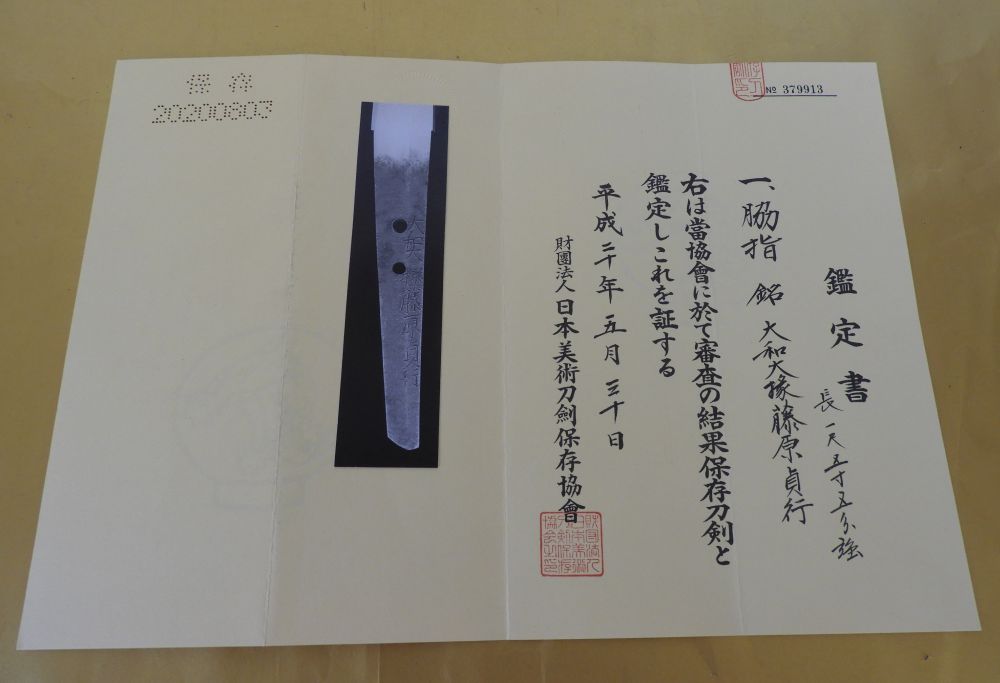 № 379913
鑑定書
長一尺五寸五分強
一、脇指 銘 大和大掾藤原貞行
右は當協會に於て審査の結果保存刀剣と
鑑定しこれを証する
平成二十年五月三十日
財團法人日本美術刀劍保存協會
大和大掾藤原貞行
保存
20200803